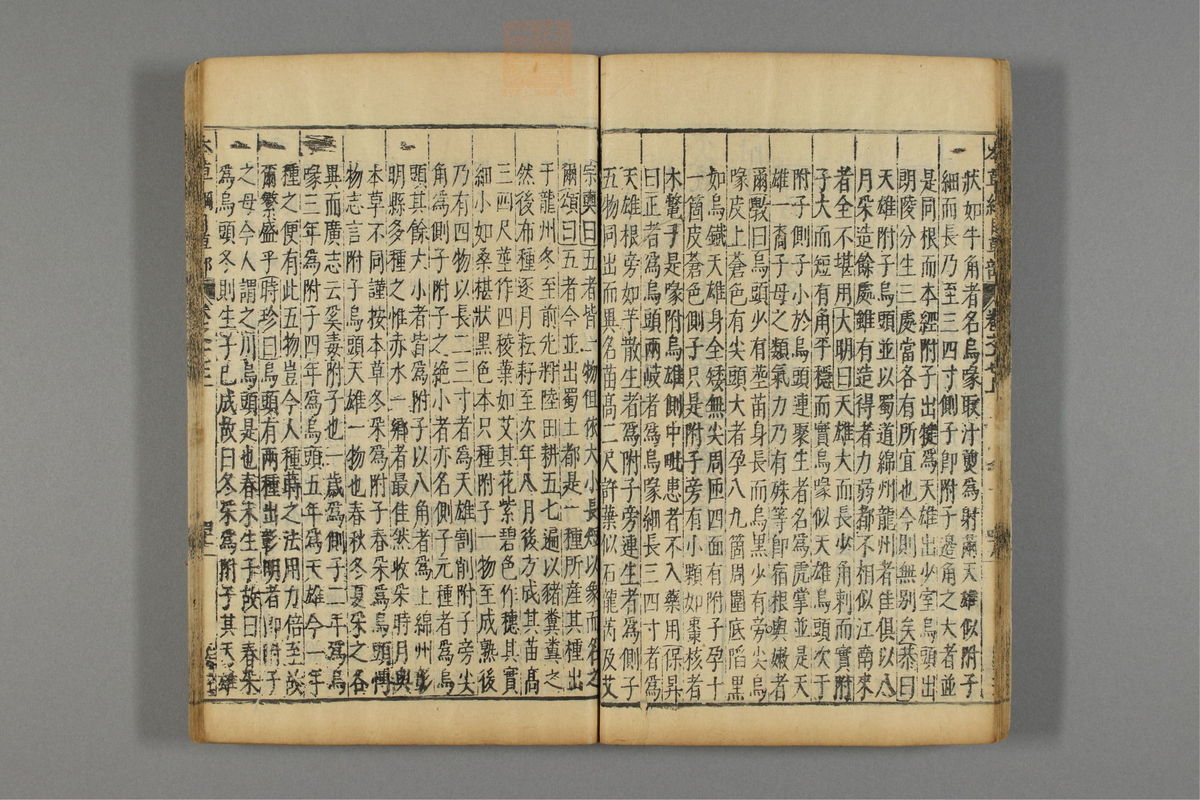 狀如牛角者名烏喙取汁煎爲射罔天雄似附子
細而長乃至三四寸側子卽附子邊角之大者並
是同根而本經附子出犍爲天雄出少室烏頭出
朗陵分生三處當各有所宜也今則無別矣恭曰
天雄附子烏頭並以蜀道綿州龍州者佳俱以八
月采造餘處雖有造得者力弱都不相似江南來
者全不堪用大明曰天雄大而長少角刺而實附
子大而短有角平穩而實烏喙似天雄烏頭次于
附子側子小於烏頭連聚生者名爲虎掌並是天
雄一裔子母之類氣力乃有殊等卽宿根與嫩者
爾斅曰烏頭少有莖苗身長而烏黑少有旁尖烏
喙皮上蒼色有尖頭大者孕八九箇周圍底陷黑
如烏鐵天雄身全矮無尖周匝四面有附子孕十
一箇皮蒼色側子只是附子旁有小顆如棗核者
木鱉子是喙附烏雄側中毗患者不入藥用保昇
曰正者爲烏頭兩岐者爲烏喙細長三四寸者爲
天雄根旁如芋散生者爲附子旁連生者爲側子
五物同出而異名苗高二尺許葉似石龍芮及艾
宗奭曰五者皆一物但依大小長短以象而名之
爾頌曰五者今並出蜀土都是一種所產其種出
于龍州冬至前先將陸田耕五七遍以豬糞糞之
然後布種逐月耘耔至次年八月後方成其苗高
三四尺莖作四稜葉如艾其花紫碧色作穗其實
細小如桑椹狀黑色本只種附子一物至成熟後
乃有四物以長二三寸者爲天雄割削附子旁尖
角爲側子附子之絕小者亦名側子元種者爲烏
頭其餘大小者皆爲附子以八角者爲上綿州彰
明縣多種之惟赤水一鄉者最佳然收采時月與
本草不同謹按本草冬采爲附子春采爲烏頭博
物志言附子烏頭天雄一物也春秋冬夏采之各
異而廣志云奚毒附子也一歲爲側子二年爲烏
喙三年爲附子四年爲烏頭五年爲天雄今一年
種之便有此五物豈今人種蒔之法用力倍至故
爾繁盛乎時珍曰烏頭有兩種出彰明者卽附子
之母今人謂之川烏頭是也春末生子故曰春采
爲烏頭冬則生子已成故曰冬采爲附子其天雄